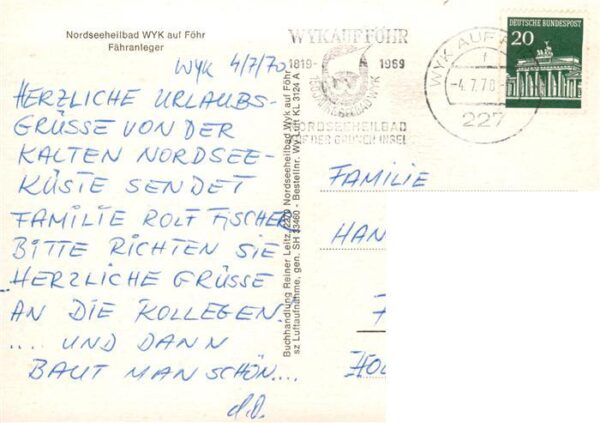 Nordseeheilbad WYK auf Föhr
Fähranleger
WYK 4/7/70
HERZLICHE URLAUBS-
GRÜSSE VON DER
KALTEN NORDSEE-
KÜSTE SENDET
FAMILIE ROLF FISCHER
BITTE RICHTEN SIE
HERZLICHE GRÜSSE
AN DIE KOLLEGEN.
.... UND DANN
BAUT MAN SCHÖN....
d.O.
Buchhandlung Reiner Leitz, 2270 Nordseeheilbad Wyk auf Föhr
sz Luftaufnahme, gen. SH 33460 - Bestellnr. Wy Luft KL 3124 A
WYK AUF FÖHR
1819- 1969
150 JAHRE SEEBAD WYK
NORDSEEHEILBAD
AUF DER GRÜNEN INSEL
WYK AUF
-4.7.70-
227
DEUTSCHE BUNDESPOST
20
FAMILIE
HAN